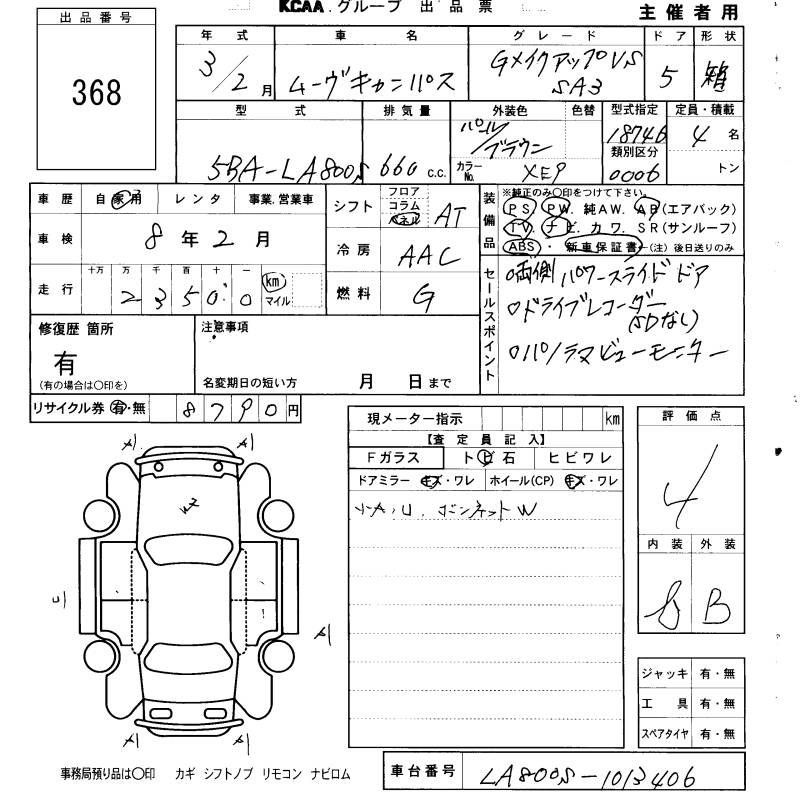 KCAA.グループ 出品票
主催者用
出品番号
368
年式 車名 グレード ドア 形状
3/2月 ムーヴキャンバス GメイクアップVS SA3 5 箱
型式 排気量 外装色 色替 型式指定 定員・積載
5BA-LA800S 660 C.C. パール/ブラウン 18746 4 名
カラーNo. XE9 類別区分 0006 トン
車歴 自家用 レンタ 事業.営業車
車検 8 年 2 月
走行 十万 万 千 百 十 一
2 3 5 0 0 km マイル
シフト フロア コラム パネル AT
冷房 AAC
燃料 G
装備品 ※純正のみ○印をつけて下さい。
PS PW. 純AW. AB(エアバック)
TV. ナビ. カワ. SR(サンルーフ)
ABS ・ 新車保証書←(注)後日送りのみ
セールスポイント
○両側パワースライドドア
○ドライブレコーダー
(SDなし)
○パノラマビューモニター
修復歴 箇所
有
(有の場合は○印を)
注意事項
名変期日の短い方 月 日まで
リサイクル券 有・無 8790円
現メーター指示 km
【査定員記入】
Fガラス トビ石 ヒビワレ
ドアミラー キズ・ワレ ホイール(CP) キズ・ワレ
小A.U. ボンネットW
評価点
4
内装 外装
B
A A
W
U
A
A A
ジャッキ 有・無
工具 有・無
スペアタイヤ 有・無
事務局預り品は○印 カギ シフトノブ リモコン ナビロム
車台番号 LA800S-1013406